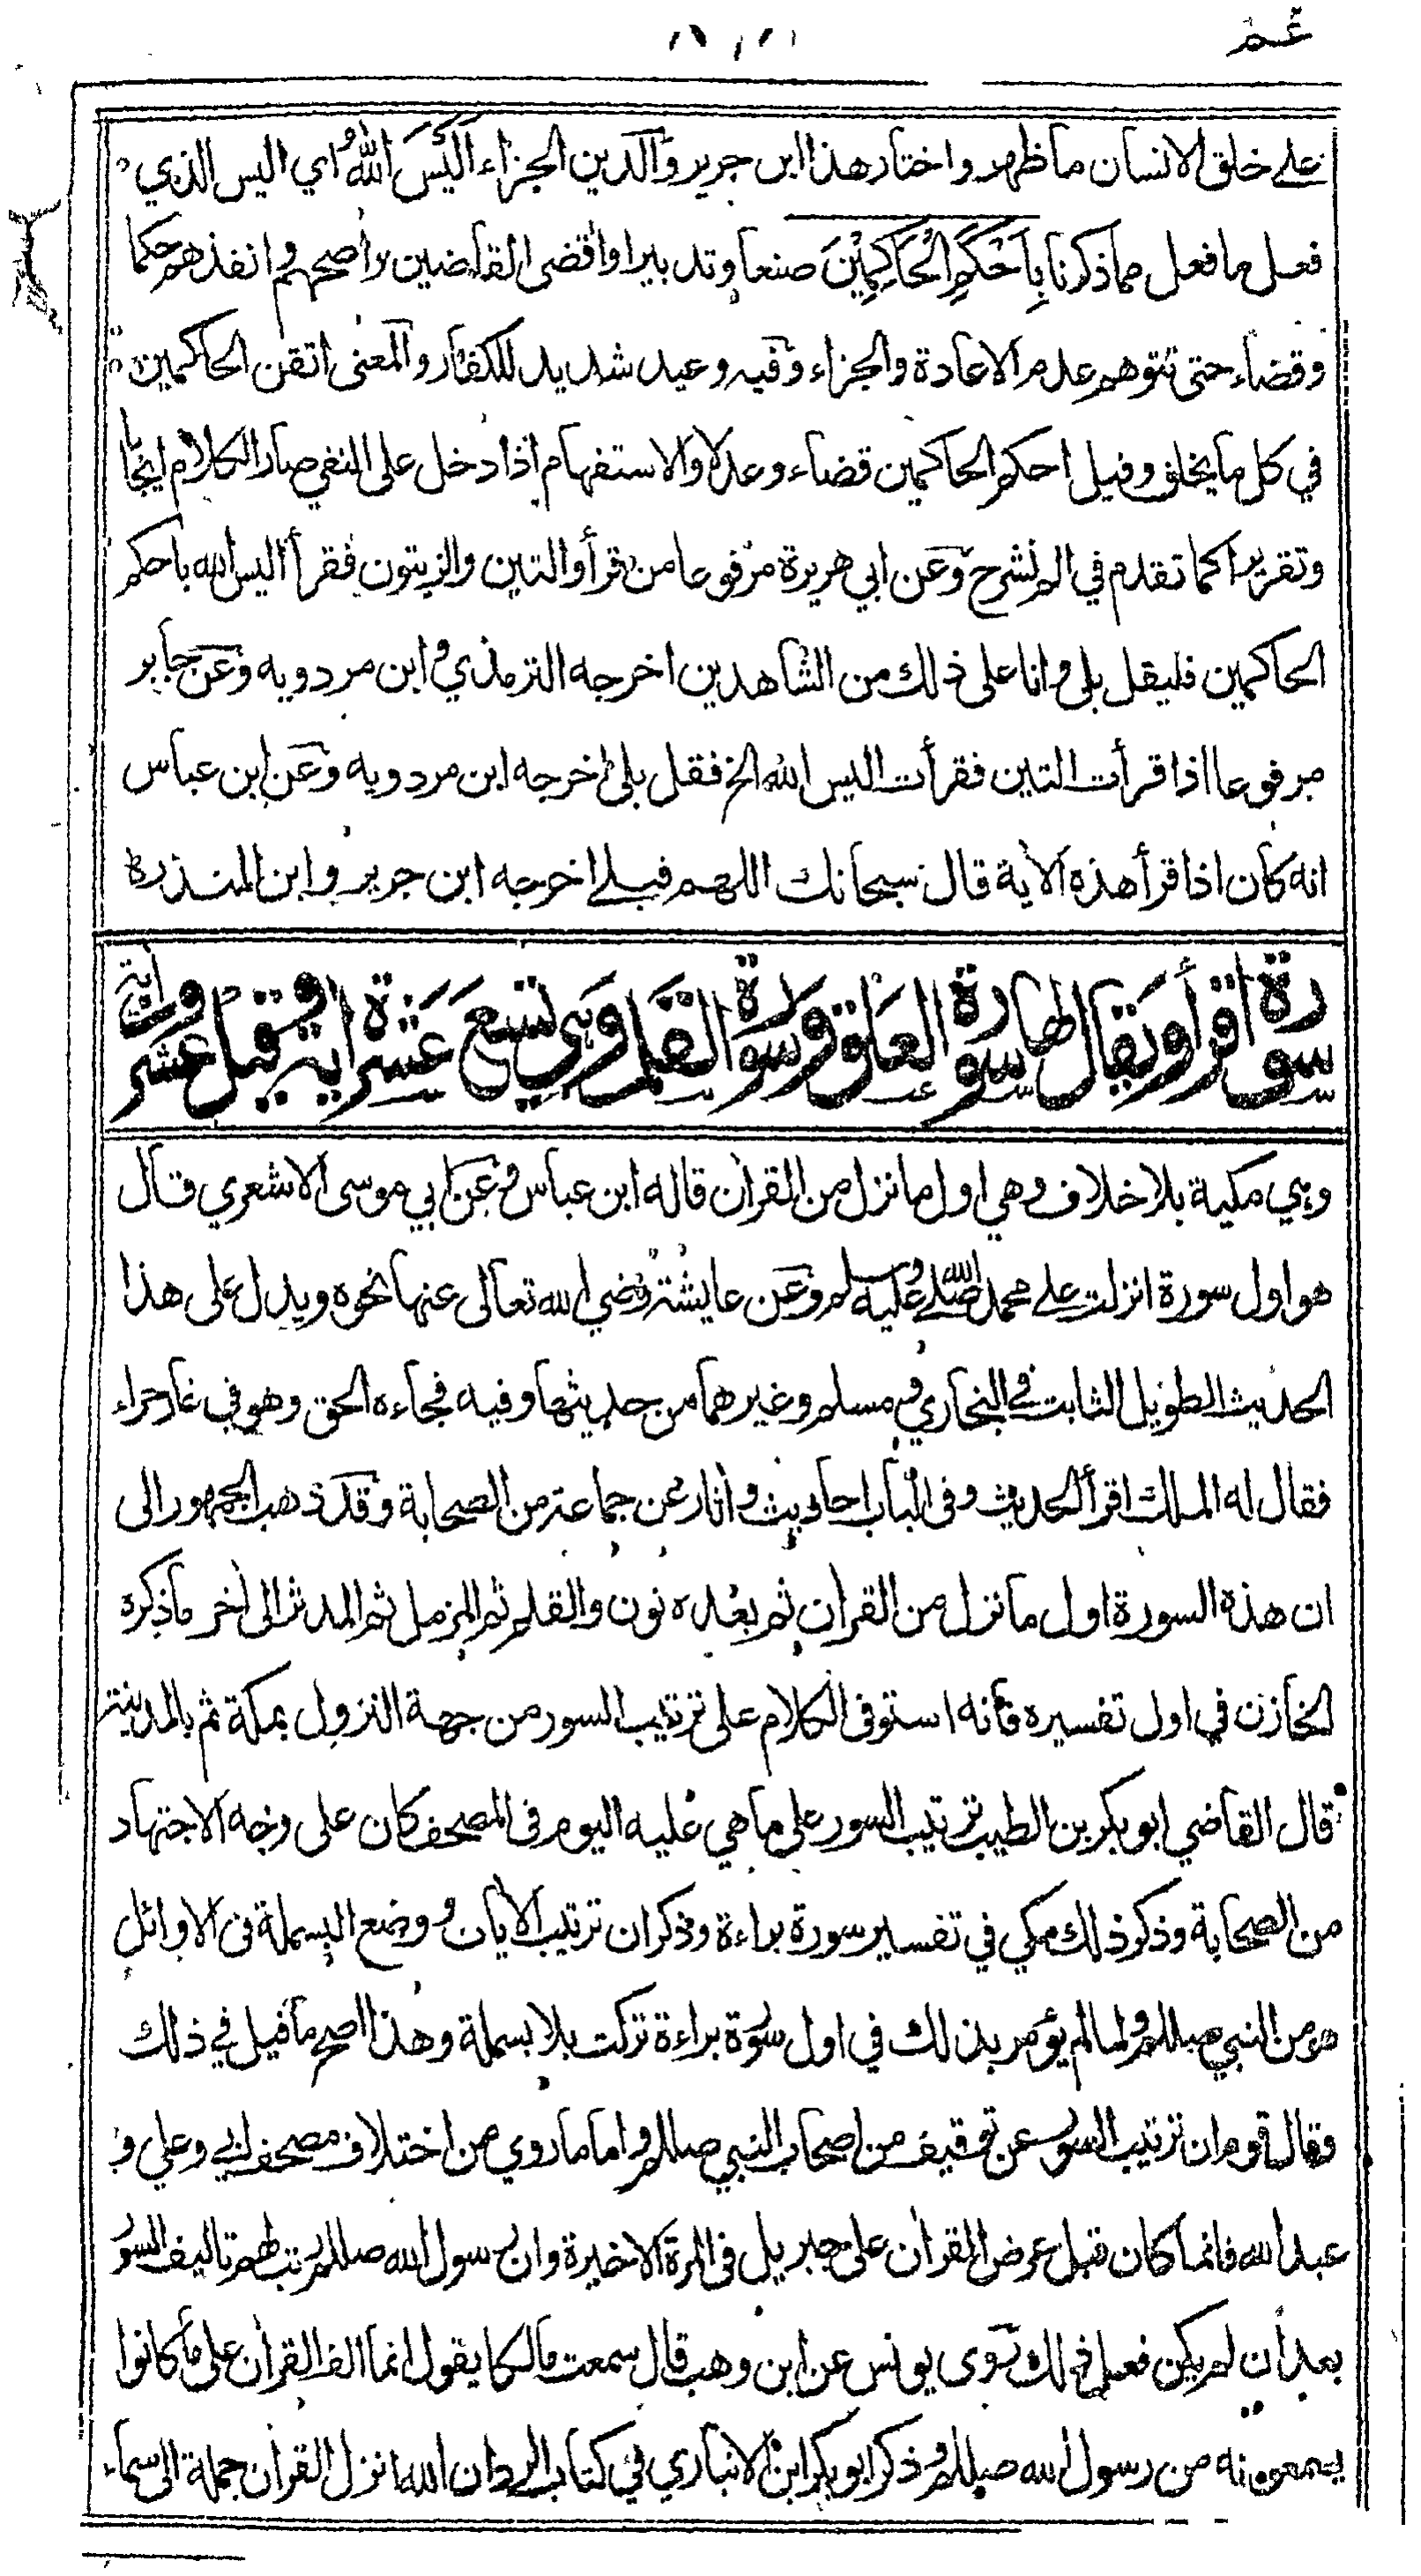 عم
على خلق الانسان ما ظهر واختار هذا ابن جرير والدين الجزاء اَلَيْسَ اللّٰهُ اي اليس الذي
فعل ما فعل مما ذكرنا بِاَحْكَمِ الْحَاكِمِيْنَ صنعا وتدبيرا واقضى القاضين واصحهم وانفذهم حكما
وقضاء حتى تتوهم عدم الاعادة والجزاء وفيه وعيد شديد للكفار والمعنى اتقن الحاكمين
في كل ما يخلق وقيل احكم الحاكمين قضاء وعدلا والاستفهام اذا دخل على النفي صار الكلام ايجابا
وتقريرا كما تقدم في الم نشرح وعن ابي هريرة مرفوعا من قرأ والتين والزيتون فقرأ اليس الله باحكم
الحاكمين فليقل بلى وانا على ذلك من الشاهدين اخرجه الترمذي وابن مردويه وعن جابر
مرفوعا اذا قرأت التين فقرأت اليس الله الخ فقل بلى اخرجه ابن مردويه وعن ابن عباس
انه كان اذا قرأ هذه الاية قال سبحانك اللهم فبلى اخرجه ابن جرير وابن المنذر
سورة اقرأ ويقال لها سورة العلق وسورة القلم وهي تسع عشرة اية وقيل عشرون اية
وهي مكية بلا خلاف وهي اول ما نزل من القرآن قاله ابن عباس وعن ابي موسى الاشعري قال
هو اول سورة انزلت على محمد صلى الله عليه وسلم وعن عايشة رضي الله تعالى عنها نحوه ويدل على هذا
الحديث الطويل الثابت في البخاري ومسلم وغيرهما من حديثها وفيه فجاءه الحق وهو في غار حراء
فقال له الملك اقرأ الحديث وفى الباب احاديث وآثار عن جماعة من الصحابة وقد ذهب الجمهور الى
ان هذه السورة اول ما نزل من القرآن ثم بعده نون والقلم ثم المزمل ثم المدثر الى آخر ما ذكره
الخازن في اول تفسيره فانه استوفى الكلام على ترتيب السور من جهة النزول بمكة ثم بالمدينة
قال القاضي ابو بكر بن الطيب ترتيب السور على ما هي عليه اليوم فى المصحف كان على وجه الاجتهاد
من الصحابة وذكر ذلك مكي في تفسير سورة براءة وذكر ان ترتيب الآيات ووضع البسملة فى الاوائل
هو من النبي صللم ولما لم يؤمر بذلك في اول سورة براءة تركت بلا بسملة وهذا اصح ما قيل في ذلك
وقال قوم ان ترتيب السور عن توقيف من اصحاب النبي صللم واما ما روي من اختلاف مصحف ابي وعلي و
عبد الله فانما كان قبل عرض القرآن على جبريل فى المرة الاخيرة وان رسول الله صللم رتب لهم تاليف السور
بعد أن لم يكن فعل ذلك روى يونس عن ابن وهب قال سمعت مالكا يقول انما الف القرآن على ما كانوا
يسمعونه من رسول الله صللم وذكر ابو بكر ابن الانباري في كتاب الرد ان الله انزل القرآن جملة الى سماء